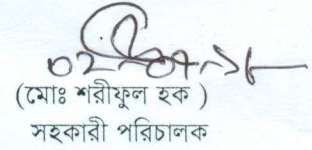 (মোঃ শরীফুল হক )
সহকারী পরিচালক